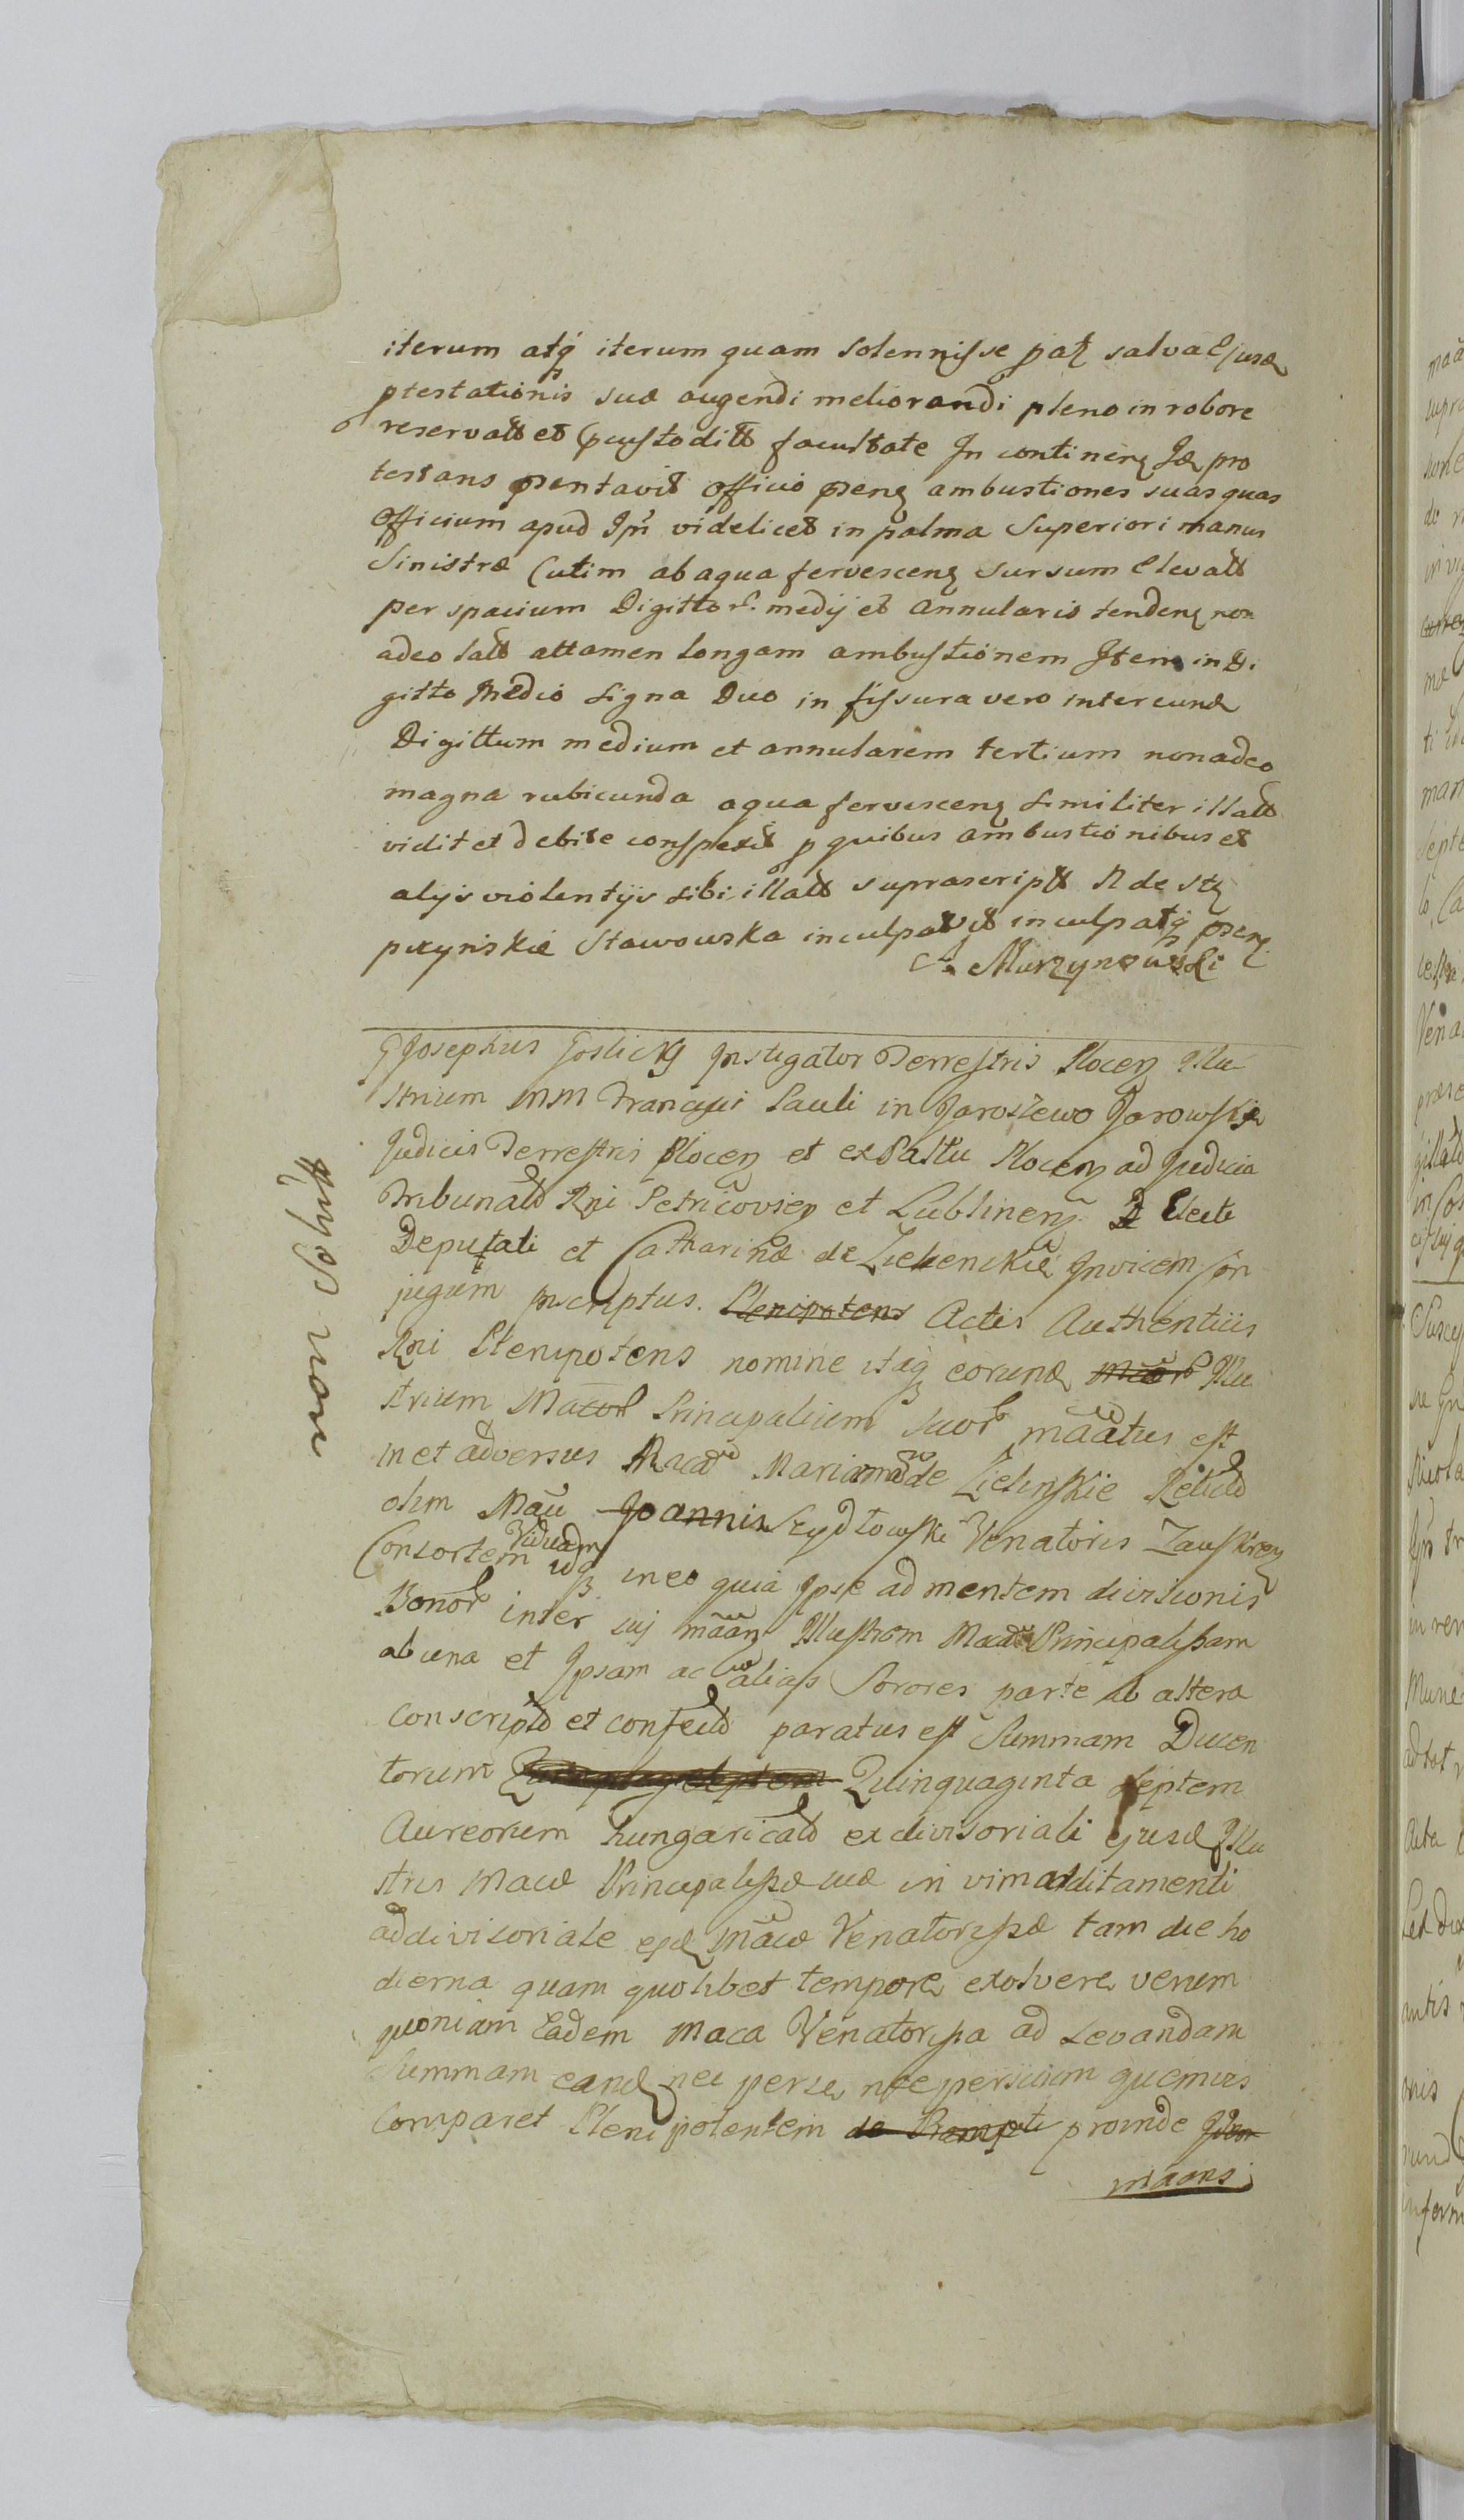 iterum atq iterum quam solennisse pat salva Ejusd
ptestationis suæ augendi meliorandi pleno in robore
reservatt et pcustoditt facultate In continen Id pro
testans psentavit Officio psen ambustiones suas quas
Officium apud Ipm videlicet in palma Superiori manus
Sinistræ Cutim ab aqua fervescen sursum Elevatt
per spacium Digittor medij et Annularis tenden non
adeo latt attamen longam ambustionem Item in Di
gitto Medio Signa Duo in fissura vero inter eund
Digittum medium et annularem tertium non adeo
magna rubicunda aqua fervescen similiter illatt
vidit et debite conspexit p quibus ambustionibus et
alijs violentijs sibi illatt suprascriptt N de
Stawowska inculpavit inculpatq psen
Murzynowski
G Josephus Goslicky Instigator Terrestris Plocen Illu
strium MM Francisci Pauli in Jaroszewo
Judicis Terrestris Plocen et ex Palttu Plocen ad Judicia
Tribunalt Rni Petricovien et Lublinen Electi
Deputati et Catharinæ de Invicem Con
jugum inscriptus. Plenipotens Actis Authenticis
Rni Plenipotens nomine itaq eorund Illu
strium Macor Principalium suor maatus est
in et adversus Macam Mariannam de Zielinskie Relictt
olim Maci Joannis Szydłowski Venatoris Zauskren
Consortem Viduam idq in eo quia Ipse ad mentem divisionis
Bonor inter suj maan Illustrem Macam Principalissam
ab una et Ipsam ac alias Sorores parte ab altera
conscriptt et confectt paratus est Summam Ducen
torum Quinquaginta septem
Aureorum hungaricalt ex divisoriali ejusd Illu
stris Macæ Principalissæ suæ in vim additamenti
ad divisoriale ejd Macæ Venatorissæ tam die ho
dierna quam quolibet tempore exolvere verum
quoniam Eadem Maca Venatorissa ad Levandam
Summam eand nec per se nec per suum quemvis
Comparet Plenipotentem proinde Idem
maans
non